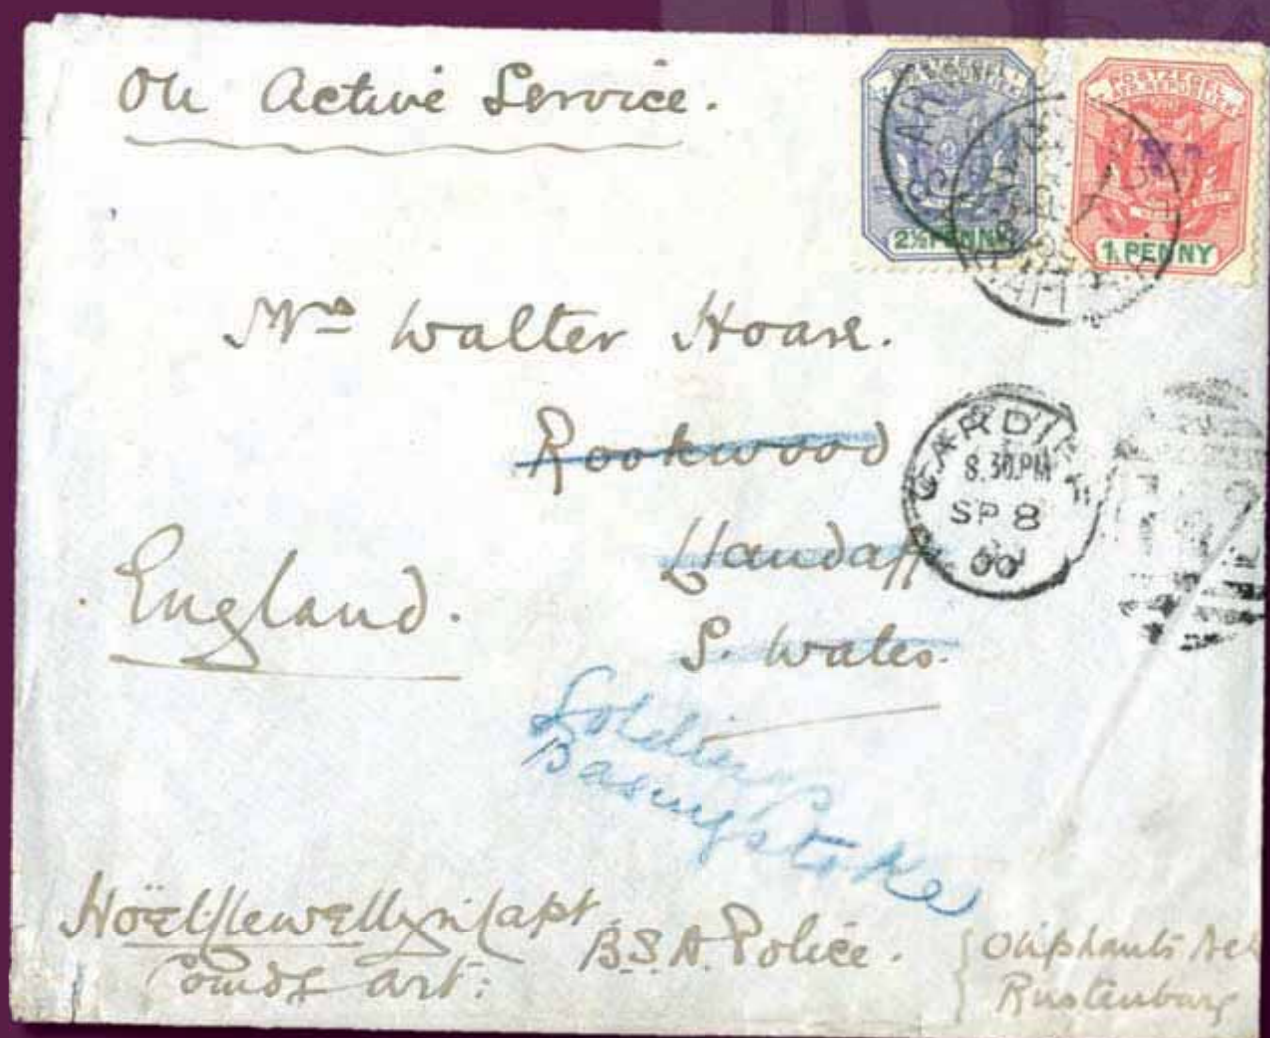 On Active Service.
POSTZEGEL
2½ PENNY
POSTZEGEL
Z. AFR. REPUBLIEK
1 PENNY
Mrs Walter Hoare.
Rookwood
Llandaff
S. Wales.
England.
CARDIFF
8.30.PM
SP 8
00
Basingstoke
Hoël Llewellyn Capt.
Comdg Art:
B.S.A. Police.
Oliphants Nek
Rustenburg